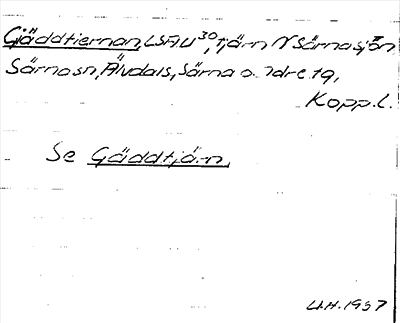 Gjäddtiernan, LSAU 30, tjärn N Särnasjön
Särna sn, Älvdals, Särna o. Idre tg,
Kopp. l.
Se Gäddtjärn,
U.H. 1937